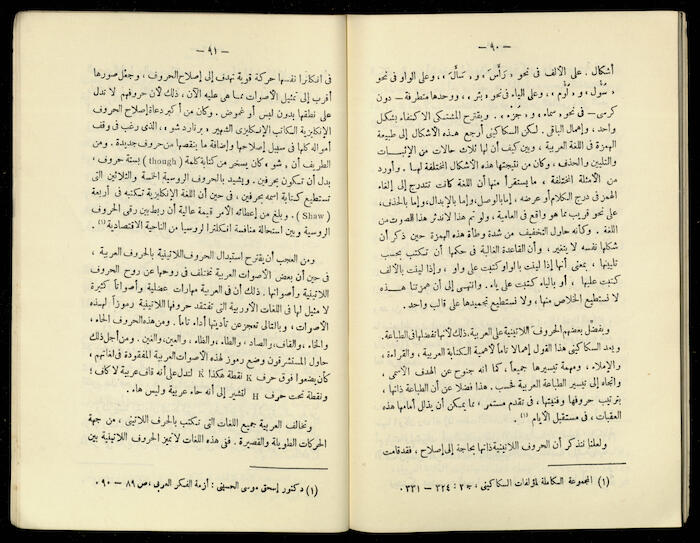 — ٩٠ —
أشكال . على الألف فى نحو « رَأَسَ » و « سَأَلَ » ، وعلى الواو فى نحو
« سُؤْل » و « لُؤْم » ، وعلى الياء فى نحو « بئر » ، ووحدها متطرفة — دون
كرسى — فى نحو « سماء » و « جُزْء » . ويقترح المتشكل الاكتفاء بشكل
واحد ، وإهمال الباقى . لكن السكاكينى أرجع هذه الأشكال إلى طبيعة
الهمزة فى اللغة العربية ، وبين كيف أن لها ثلاث حالات من الإثبات
والتليين والحذف ، وكان من نتيجتها هذه الأشكال المختلفة لها . وأورد
من الأمثلة المختلفة ، ما يستقرأ منها أن اللغة كانت تتدرج إلى إلغاء
الهمز فى درج الكلام أو عرضه ، إما بالوصل ، وإما بالإبدال ، وإما بالحذف ،
على نحو قريب مما هو واقع فى العامية ، ولو تم هذا لاندثر هذا الصوت من
اللغة . وكأنه حاول التخفيف من شدة وطأة هذه الهمزة حين ذكر أن
شكلها نفسه لا يتغير ، وأن القاعدة الغالبة فى حكمها أن تكتب بحسب
تليينها ، بمعنى أنها إذا لينت بالواو كتبت على واو ، وإذا لينت بالألف
كتبت عليها ، أو بالياء كتبت على ياء . وانتهى إلى أن همزتنا هذه
لا نستطيع الخلاص منها ، ولا نستطيع تجميدها على قالب واحد .
ويفضل بعضهم الحروف اللاتينية على العربية ، ذلك لأنها تفضلها فى الطباعة .
ويعد السكاكينى هذا القول إهمالا تاماً لأهمية الكتابة العربية ، والقراءة ،
والإملاء ، ومهمة تيسيرها جميعاً ، كما أنه جنوح عن الهدف الأسمى ،
واتجاه إلى تيسير الطباعة العربية فحسب . هذا فضلا عن أن الطباعة ذاتها ،
بترتيب حروفها وفنيتها ، فى تقدم مستمر ، مما يمكن أن يذلل أمامها هذه
العقبات ، فى مستقبل الأيام (١) .
ولعلنا نتذكر أن الحروف اللاتينية ذاتها بحاجة إلى إصلاح ، فقد قامت
(١) المجموعة الكاملة لمؤلفات السكاكينى ، ج٢ : ٣٢٤ — ٣٣١ .
— ٩١ —
فى انجلترا نفسها حركة قوية تهدف إلى إصلاح الحروف ، وجعل صورها
أقرب إلى تمثيل الأصوات مما هى عليه الآن ، ذلك لأن حروفهم لا تدل
على نطقها بدون لبس أو غموض . وكان من أكبر دعاة إصلاح الحروف
الإنكليزية الكاتب الإنكليزى الشهير « برنارد شو » ، الذى رغب فى وقف
أمواله كلها فى سبيل إصلاحها وإضافة ما ينقصها من حروف جديدة . ومن
الطريف أن « شو » كان يسخر من كتابة كلمة ( though ) بستة حروف ،
بدل أن تكون بحرفين . ويشيد بالحروف الروسية الخمسة والثلاثين التى
تستطيع كتابة اسمه بحرفين ، فى حين أن اللغة الإنكليزية تكتبه فى أربعة
( Shaw ) . وبلغ من إعطائه الأمر قيمة عالية أن ربط بين رقى الحروف
الروسية وبين استحالة منافسة انكلترا لروسيا من الناحية الاقتصادية (١) .
ومن العجب أن يقترح استبدال الحروف اللاتينية بالحروف العربية ،
فى حين أن بعض الأصوات العربية تختلف فى روحها عن روح الحروف
اللاتينية وأصواتها . ذلك أن فى العربية مهارات عضلية وأصواتاً كثيرة
لا مثيل لها فى اللغات الأوربية التى تفتقد حروفها اللاتينية رموزاً لهذه
الأصوات ، وبالتالى تعجز عن تأديتها أداء تاماً . ومن هذه الحروف الحاء ،
والخاء ، والقاف ، والصاد ، والطاء ، والظاء ، والعين ، والغين . ومن أجل ذلك
حاول المستشرقون وضع رموز لهذه الأصوات العربية المفقودة فى لغاتهم ،
كأن يضعوا فوق حرف K نقطة هكذا K̇ لتدل على أنه قاف عربية لا كاف ؛
ونقطة تحت حرف H لتشير إلى أنه حاء عربية وليس هاء .
وتخالف العربية جميع اللغات التى تكتب بالحرف اللاتينى ، من جهة
الحركات الطويلة والقصيرة . ففى هذه اللغات لا تميز الحروف اللاتينية بين
(١) دكتور إسحق موسى الحسينى : أزمة الفكر العربى ، ص ٨٩ — ٩٠ .